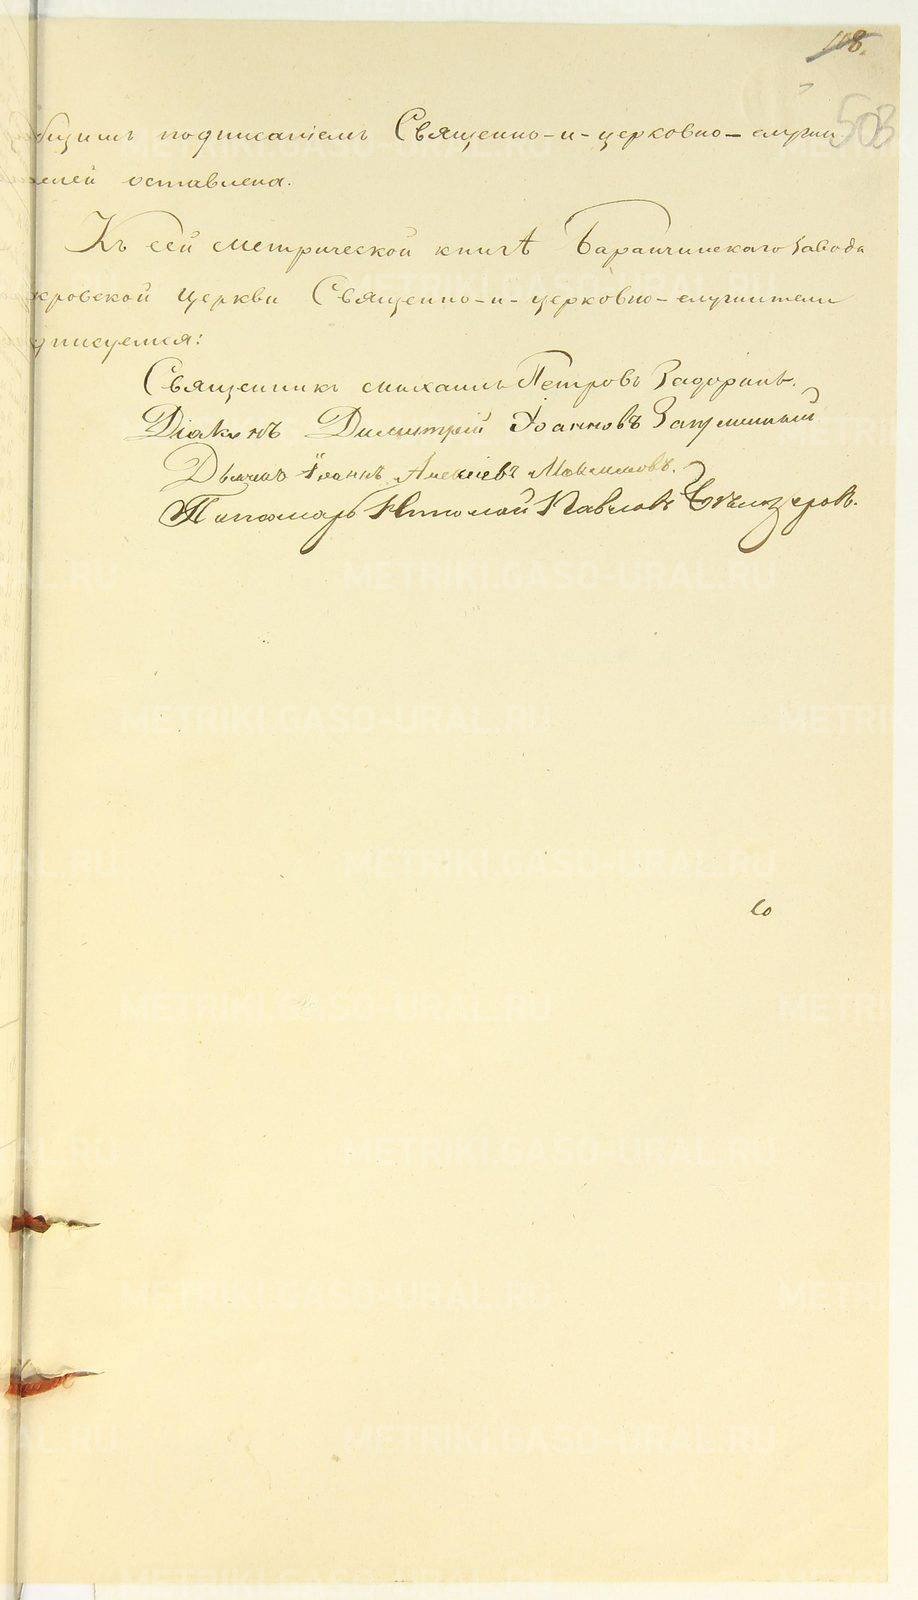 118.
503
бщимъ подписаніемъ Священно-и-церковно-служи
телей оставлена.
Къ сей метрической книгѣ Баранчинскаго завода
кровской Церкви Священно-и-церковно-служители
дписуемся:
Священникъ Михаилъ Петровъ Задоринъ.
Діаконъ Димитрій Іоанновъ
Дьячекъ Іоаннъ Алексіевъ Максимовъ.
Пономарь Николай Павловъ
METRIKI.GASO-URAL.RU